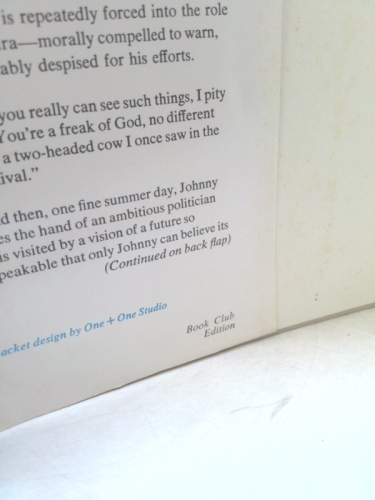 is repeatedly forced into the role
ra—morally compelled to warn,
ably despised for his efforts.
you really can see such things, I pity
You're a freak of God, no different
a two-headed cow I once saw in the
ival."
d then, one fine summer day, Johnny
es the hand of an ambitious politician
is visited by a vision of a future so
peakable that only Johnny can believe its
(Continued on back flap)
acket design by One + One Studio
Book Club
Edition